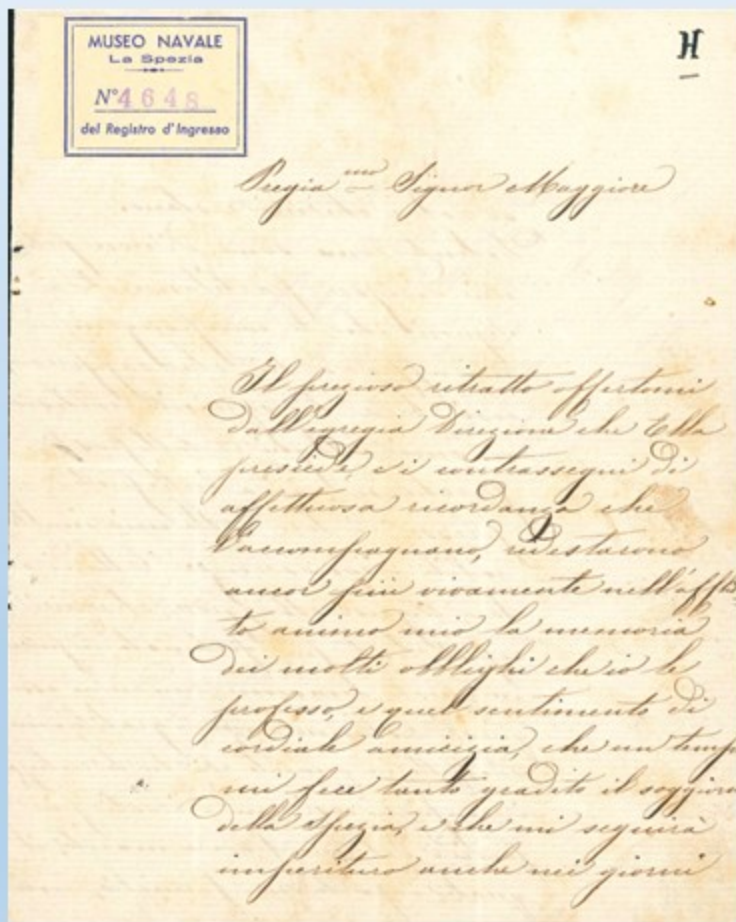 MUSEO NAVALE
La Spezia
N° 4648
del Registro d'Ingresso
H
Pregia mo Signor Maggiore
Il prezioso ritratto offertomi
dall'egregia Direzione che Ella
presiede, e i contrassegni di
affettuosa ricordanza che
l'accompagnano, ridestarono
ancor più vivamente nell'afflit
to animo mio la memoria
dei molti obblighi che io le
professo, e quel sentimento di
cordiale amicizia, che un tempo
mi fece tanto gradito il soggiorno
della Spezia, e che mi seguirà
imperituro anche nei giorni